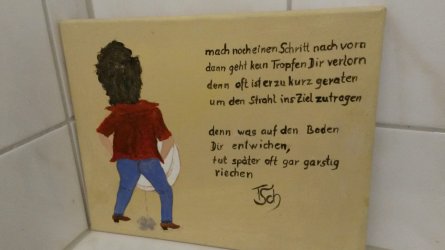 mach noch einen Schritt nach vorn
dann geht kein Tropfen Dir verlorn
denn oft ist er zu kurz geraten
um den Strahl ins Ziel zutragen
denn was auf den Boden
Dir entwichen,
tut später oft gar garstig
riechen
TSch